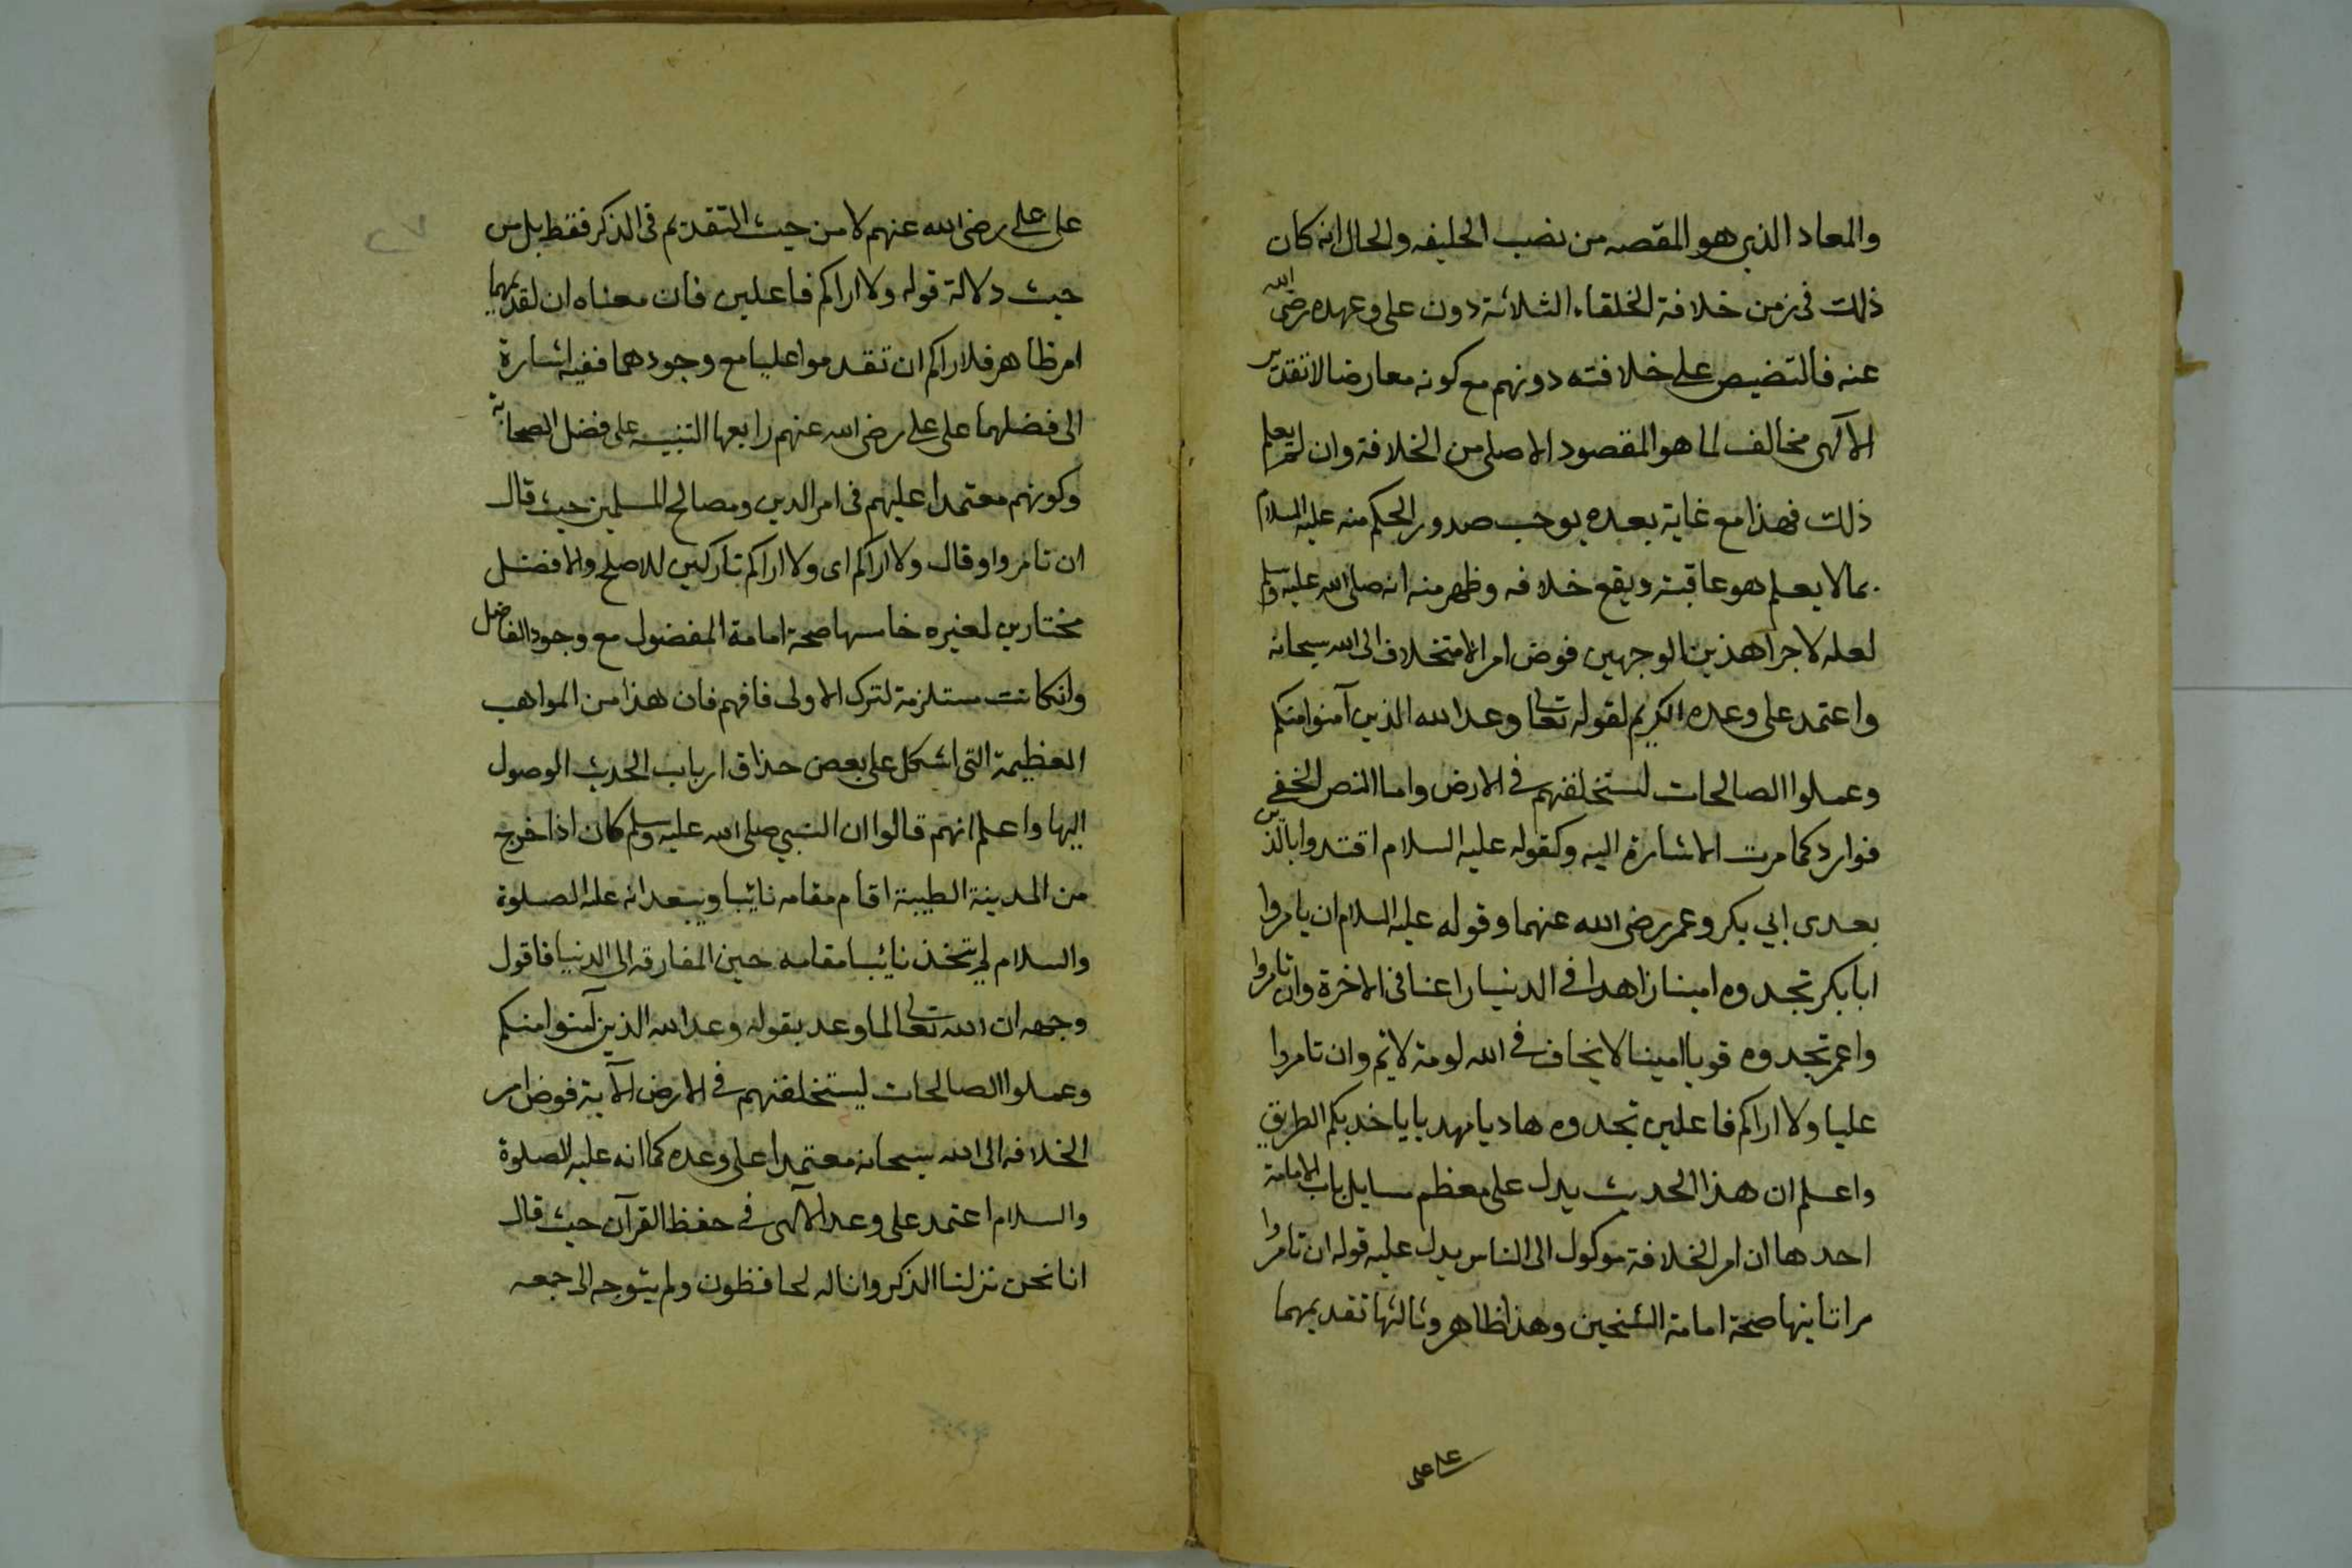 والمعاد الذي هو المقصه من نصب الخليفه والحال انه كان
ذلك فى زمن خلافة الخلفاء الثلاثة دون على وعهده رضى الله
عنه فالتنصيص على خلافته دونهم مع كونه معارضا لا تقدير
الآلهى مخالف لما هو المقصود الاصلى من الخلافة وان لم يعلم
ذلك فهذا مع غاية بعده يوجب صدور الحكم منه عليه السلام
بما لا يعلم هو عاقبته ويقع خلافه وظهر منه انه صلى الله عليه وسلم
لعله لاجرا هذين الوجهين فوض امر الاستخلاف الى الله سبحانه
واعتمد على وعده الكريم لقوله تعالى وعد الله الذين آمنوا منكم
وعملوا الصالحات ليستخلفنهم فى الارض واما النص الخفى
فوارد كما مرت الاشارة اليه وكقوله عليه السلام اقتدوا بالذين
بعدى ابي بكر وعمر رضى الله عنهما وقوله عليه السلام ان يامروا
ابا بكر تجدوه امينا زاهدا فى الدنيا راغبا فى الاخرة وان تامروا
واعمر تجدوه قويا امينا لا يخاف فى الله لومة لائم وان تامروا
عليا ولا اراكم فاعلين تجدوه هاديا مهديا ياخذ بكم الطريق
واعلم ان هذا الحديث يدل على معظم مسايل باب الامامة
احدها ان امر الخلافة موكول الى الناس يدل عليه قوله ان تامروا
مرا ثانيها صحة امامة الشيخين وهذا ظاهر وثالثها تقديمهما
على على
على على رضى الله عنهم لا من حيث التقديم فى الذكر فقط بل من
حيث دلالة قوله ولا اراكم فاعلين فان معناه ان تقديمهما
امر ظاهر فلا اراكم ان تقدموا عليا مع وجودهما ففيه اشارة
الى فضلهما على على رضى الله عنهم رابعها التنبيه على فضل الصحابة
وكونهم معتمدا عليهم فى امر الدين ومصالح المسلمين حيث قال
ان تامروا وقال ولا اراكم اى ولا اراكم تاركين للاصلح والافضل
مختارين لغيره خامسها صحة امامة المفضول مع وجود الفاضل
وانكانت مستلزمة لترك الاولى فافهم فان هذا من المواهب
العظيمة التى اشكل على بعض حذاق ارباب الحديث الوصول
اليها واعلم انهم قالوا ان النبي صلى الله عليه وسلم كان اذا خرج
من المدينة الطيبة اقام مقامه نائبا ويبعد انه عليه الصلوة
والسلام لم يتخذ نائبا مقامه حين المفارقه الى الدنيا فاقول
وجهه ان الله تعالى لما وعد بقوله وعد الله الذين آمنوا منكم
وعملوا الصالحات ليستخلفنهم فى الارض الآية فوض امر
الخلافه الى الله سبحانه معتمدا على وعده كما انه عليه الصلوة
والسلام اعتمد على وعد الآلهى فى حفظ القرآن حيث قال
انا نحن نزلنا الذكر وانا له لحافظون ولم يتوجه الى جمعه